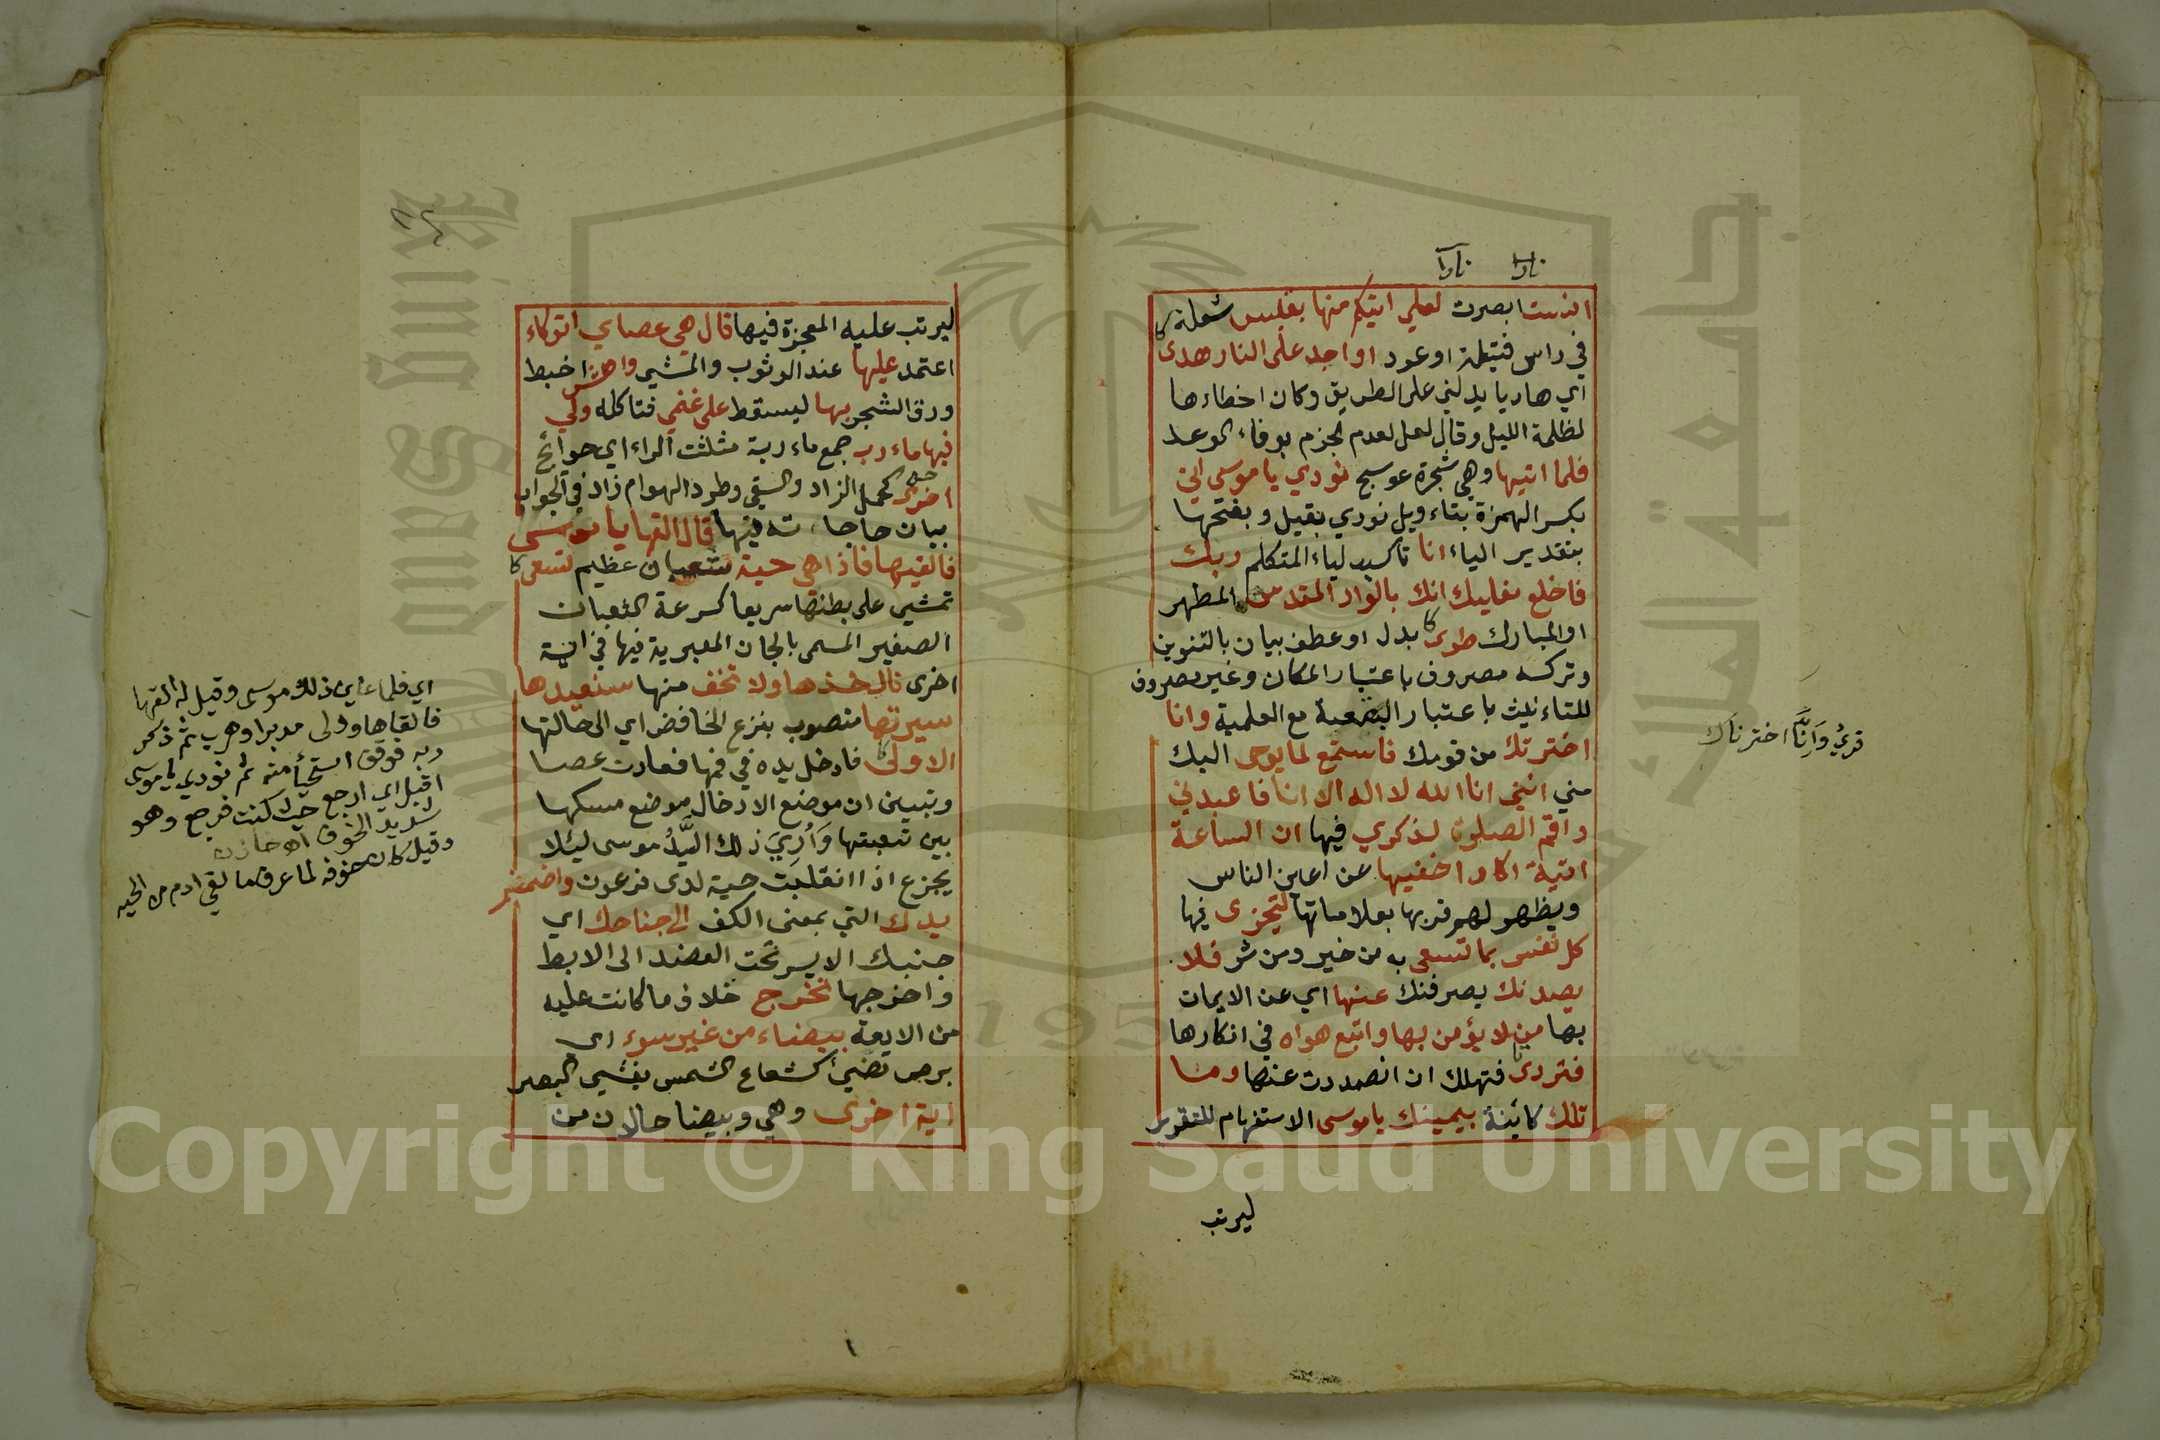 نارا نارا
انست ابصرت لعلي اتيكم منها بقبس شعلة
في راس فتيلة او عود او اجد على النار هدى
اي هاديا يدلني على الطريق وكان اخطاءها
لظلمة الليل وقال لعل لعدم الجزم بوفاء الوعد
فلما اتيها وهي شجرة عوسج نودي يا موسى اني
بكسر الهمزة بتاءويل نودي بقيل وبفتحها
بتقدير الياء انا تاكيد لياء المتكلم ربك
فاخلع نعليك انك بالواد المقدس المطهر
او المبارك طوى بدل او عطف بيان بالتنوين
وتركه مصروف باعتبار المكان وغير مصروف
للتاءنيث باعتبار البقعة مع العلمية وانا
اخترتك من قومك فاستمع لما يوحى اليك
مني انني انا الله لا اله الا انا فاعبدني
واقم الصلوة لذكري فيها ان الساعة
اتية اكاد اخفيها عن اعين الناس
ويظهر لهم قربها بعلاماتها لتجزى فيها
كل نفس بما تسعى به من خير ومن شر فلا
يصدنك يصرفنك عنها اي عن الايمان
بها من لا يؤمن بها واتبع هواه في انكارها
فتردى فتهلك ان انصددت عنها وما
تلك كائنة بيمينك يا موسى الاستفهام للتقرير
ليرتب
قرئ وانا اخترناك
ليرتب عليه المعجزة فيها قال هي عصاي اتوكاء
اعتمد عليها عند الوثوب والمشي واهش اخبط
ورق الشجر بها ليسقط على غنمي فتاكله ولي
فيها ماءرب جمع ماءربة مثلث الراء اي حوائج
اخرى كحمل الزاد والسقي وطرد الهوام زاد في الجواب
بيان حاجاته فيها قال القها يا موسى
فالقيها فاذا هي حية ثعبان عظيم تسعى
تمشي على بطنها سريعا كسرعة الثعبان
الصغير المسمى بالجان المعبر به فيها في اية
اخرى قال خذها ولا تخف منها سنعيدها
سيرتها منصوب بنزع الخافض اي الى حالتها
الاولى فادخل يده في فمها فعادت عصا
وتبين ان موضع الادخال موضع مسكها
بين شعبتها وَأُرِيَ ذلك السَّيِّدُ موسى ليئلا
يجزع اذا انقلبت حية لدى فرعون واضمم
يدك التي بمعنى الكف الى جناحك اي
جنبك الايسر تحت العضد الى الابط
واخرجها تخرج خلاف ما كانت عليه
من الادمة بيضاء من غير سوء اي
برص تضيئ كشعاع الشمس يغشي البصر
اية اخرى وهي وبيضا حالان من
اي فلما عاين ذلك موسى وقيل له القها
فالقاها وولى مدبرا وهرب ثم ذكر
ربه فوقف استحيأ منه ثم نودي يا موسى
اقبل اي ارجع حيث كنت فرجع وهو
شديد الخوف اه خازن
وقيل كان خوفه لما عرف ما لقي ادم من الحيه
Copyright © King Saud University
جامعة الملك
1957